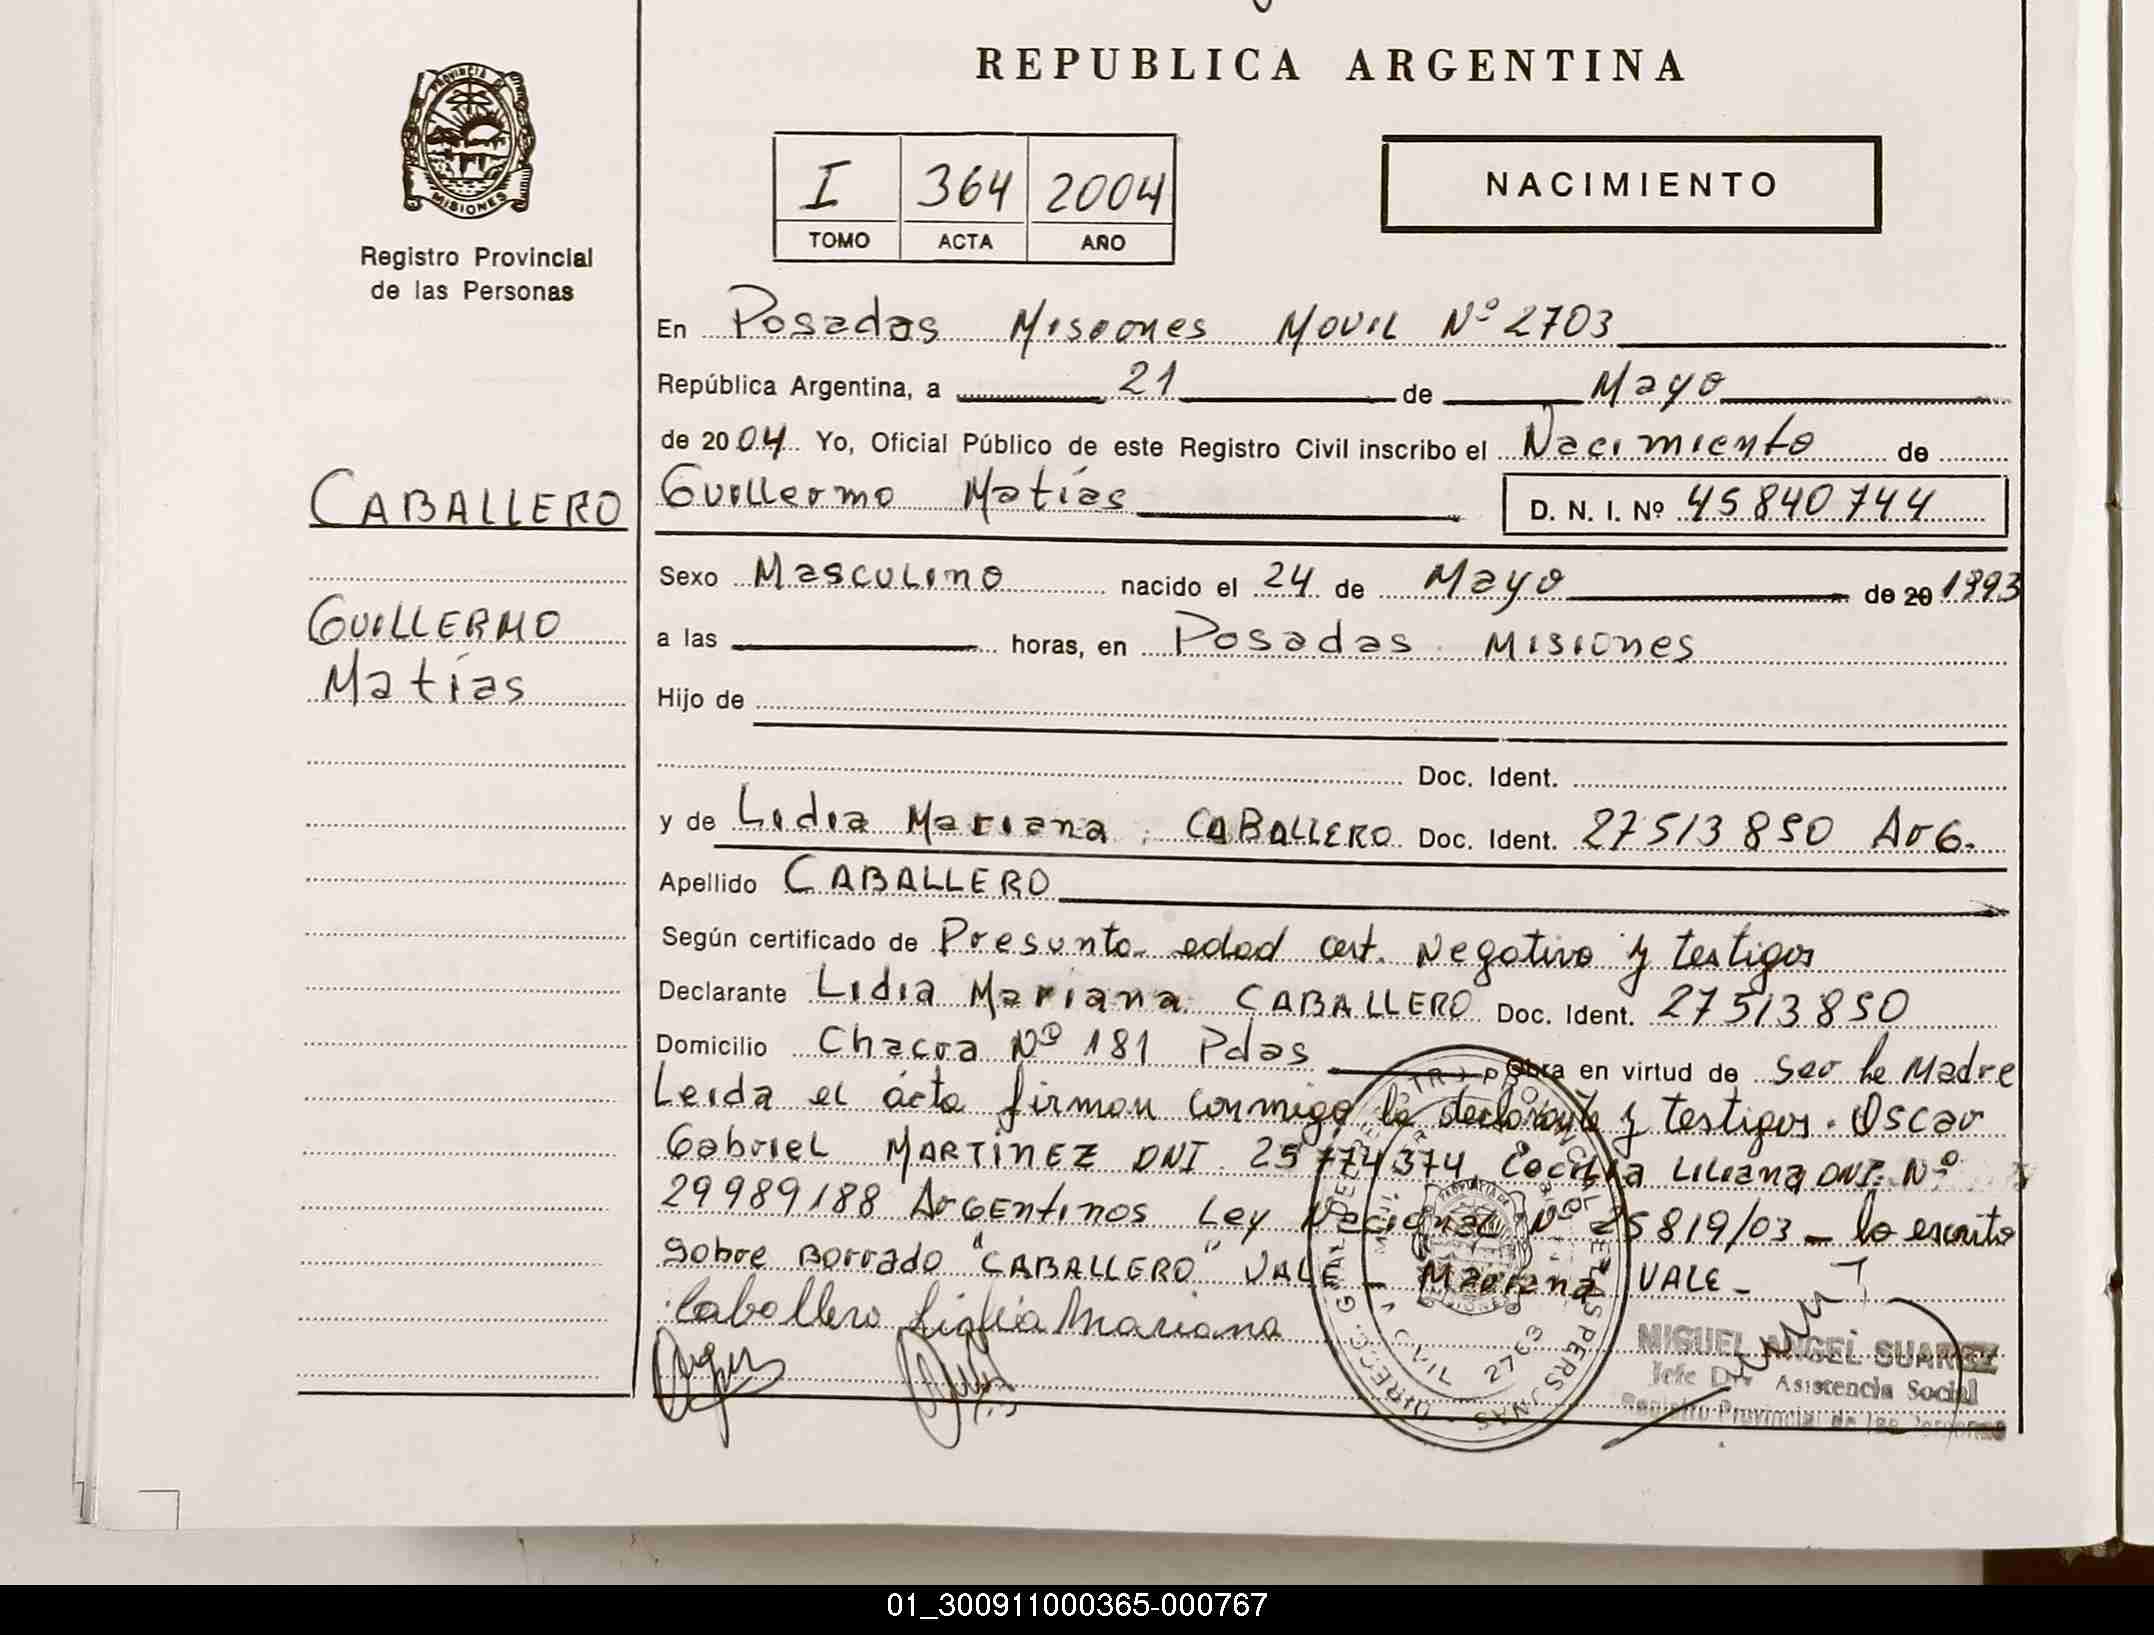 REPUBLICA ARGENTINA
PROVINCIA DE
MISIONES
Registro Provincial
de las Personas
I 364 2004
TOMO ACTA AÑO
NACIMIENTO
En Posadas Misiones Movil Nº 2703
República Argentina, a 21 de Mayo
de 2004 Yo, Oficial Público de este Registro Civil inscribo el Nacimiento de
CABALLERO
Guillermo Matías D. N. I. Nº 45840744
Sexo Masculino nacido el 24 de Mayo de 20 1993
GUILLERMO
Matías
a las horas, en Posadas Misiones
Hijo de
Doc. Ident.
y de Lidia Mariana CABALLERO Doc. Ident. 27513850 Arg.
Apellido CABALLERO
Según certificado de Presunta edad cert. Negativo y testigos
Declarante Lidia Mariana CABALLERO Doc. Ident. 27513850
Domicilio Chacra Nº 181 Pdas Obra en virtud de ser la Madre
Leida el acta firman conmigo la declarante y testigos. Oscar
Gabriel MARTINEZ DNI 25774374 Cecilia Liliana DNI Nº
29989188 Argentinos Ley Nacional Nº 25819/03 - lo escrito
sobre Borrado "CABALLERO" VALE - Mariana VALE -
Caballero Lidia Mariana
MIGUEL ANGEL SUAREZ
Jefe Div Asistencia Social
Registro Provincial de las Personas
01_300911000365-000767